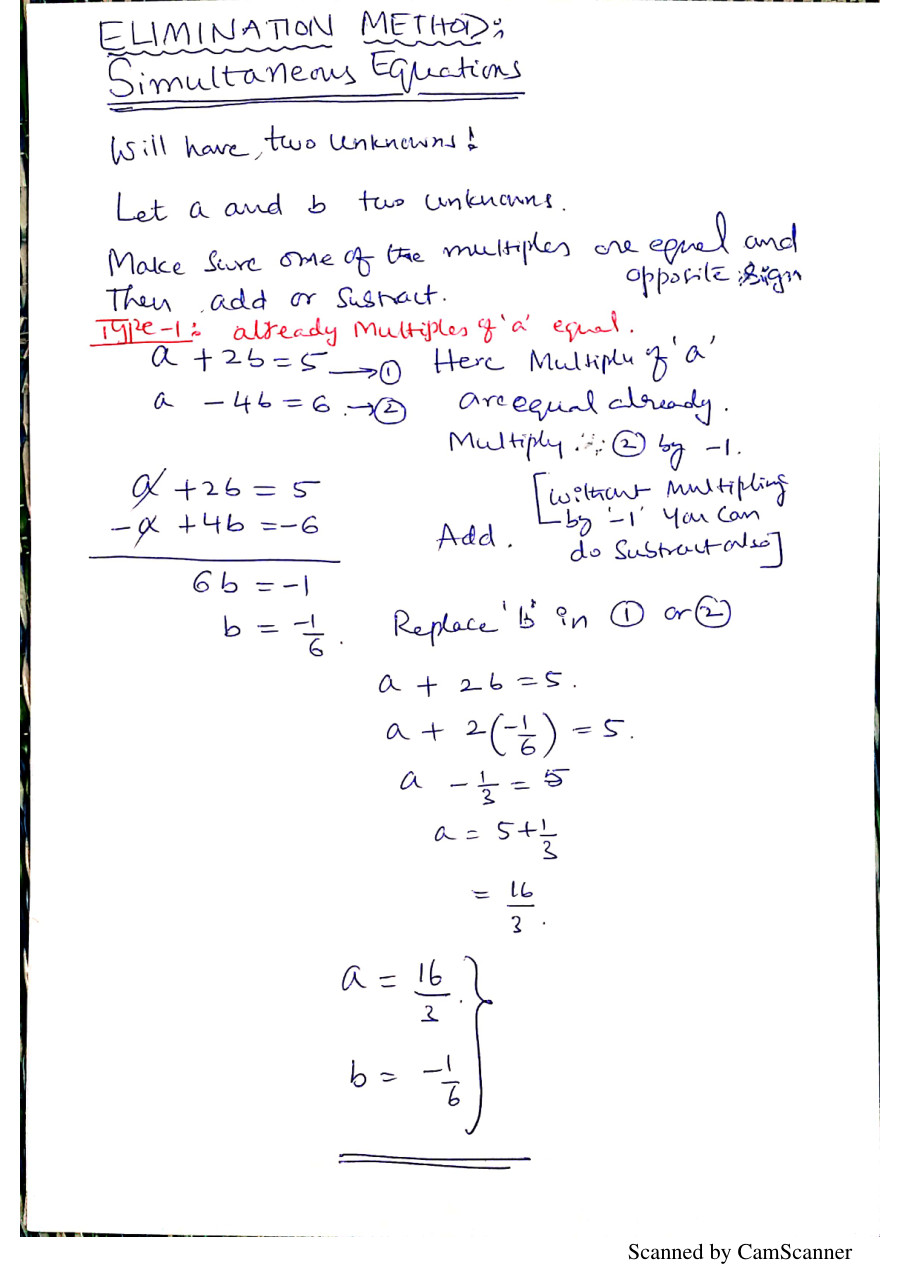 ELIMINATION METHOD:
Simultaneous Equations
Will have, two unknowns!
Let a and b two unknowns.
Make Sure one of the multiples are equal and
opposite sign
Then add or Subtract.
Type-1: already Multiples of 'a' equal.
a + 2b = 5 → ① Here Multiply of 'a'
a - 4b = 6 → ② are equal already.
Multiply ② by -1.
a + 2b = 5 [without multipling
-a + 4b = -6 Add. by '-1' You can
do Substract also]
6b = -1
b = -1/6. Replace 'b' in ① or ②
a + 2b = 5.
a + 2(-1/6) = 5.
a - 1/3 = 5
a = 5 + 1/3
= 16/3.
a = 16/3.
b = -1/6
Scanned by CamScanner